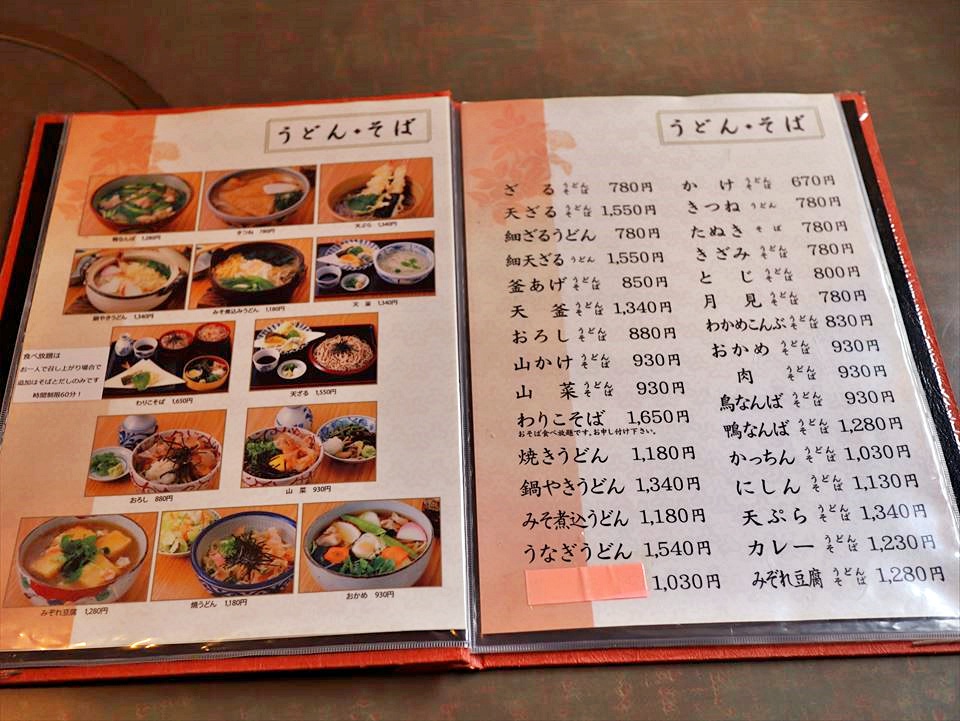 うどん・そば
鴨なんば 1,280円
きつね 780円
天ぷら 1,340円
鍋やきうどん 1,340円
みそ煮込みうどん 1,180円
天釜 1,340円
食べ放題は
お一人で召し上がり場合で
追加はそばとだしのみです
時間制限60分！
わりこそば 1,650円
天ざる 1,550円
おろし 880円
山菜 930円
みぞれ豆腐 1,280円
焼うどん 1,180円
おかめ 930円
うどん・そば
ざる うどん そば 780円
天ざる うどん そば 1,550円
細ざるうどん 780円
細天ざる うどん 1,550円
釜あげ うどん そば 850円
天釜 うどん そば 1,340円
おろし うどん そば 880円
山かけ うどん そば 930円
山菜 うどん そば 930円
わりこそば 1,650円
おそば食べ放題です。お申し付け下さい。
焼きうどん 1,180円
鍋やきうどん 1,340円
みそ煮込うどん 1,180円
うなぎうどん 1,540円
1,030円
かけ うどん そば 670円
きつね うどん 780円
たぬき そば 780円
きざみ うどん そば 780円
とじ うどん そば 800円
月見 うどん そば 780円
わかめこんぶ うどん そば 830円
おかめ うどん そば 930円
肉 うどん そば 930円
鳥なんば うどん そば 930円
鴨なんば うどん そば 1,280円
かっちん うどん そば 1,030円
にしん うどん そば 1,130円
天ぷら うどん そば 1,340円
カレー うどん そば 1,230円
みぞれ豆腐 うどん そば 1,280円